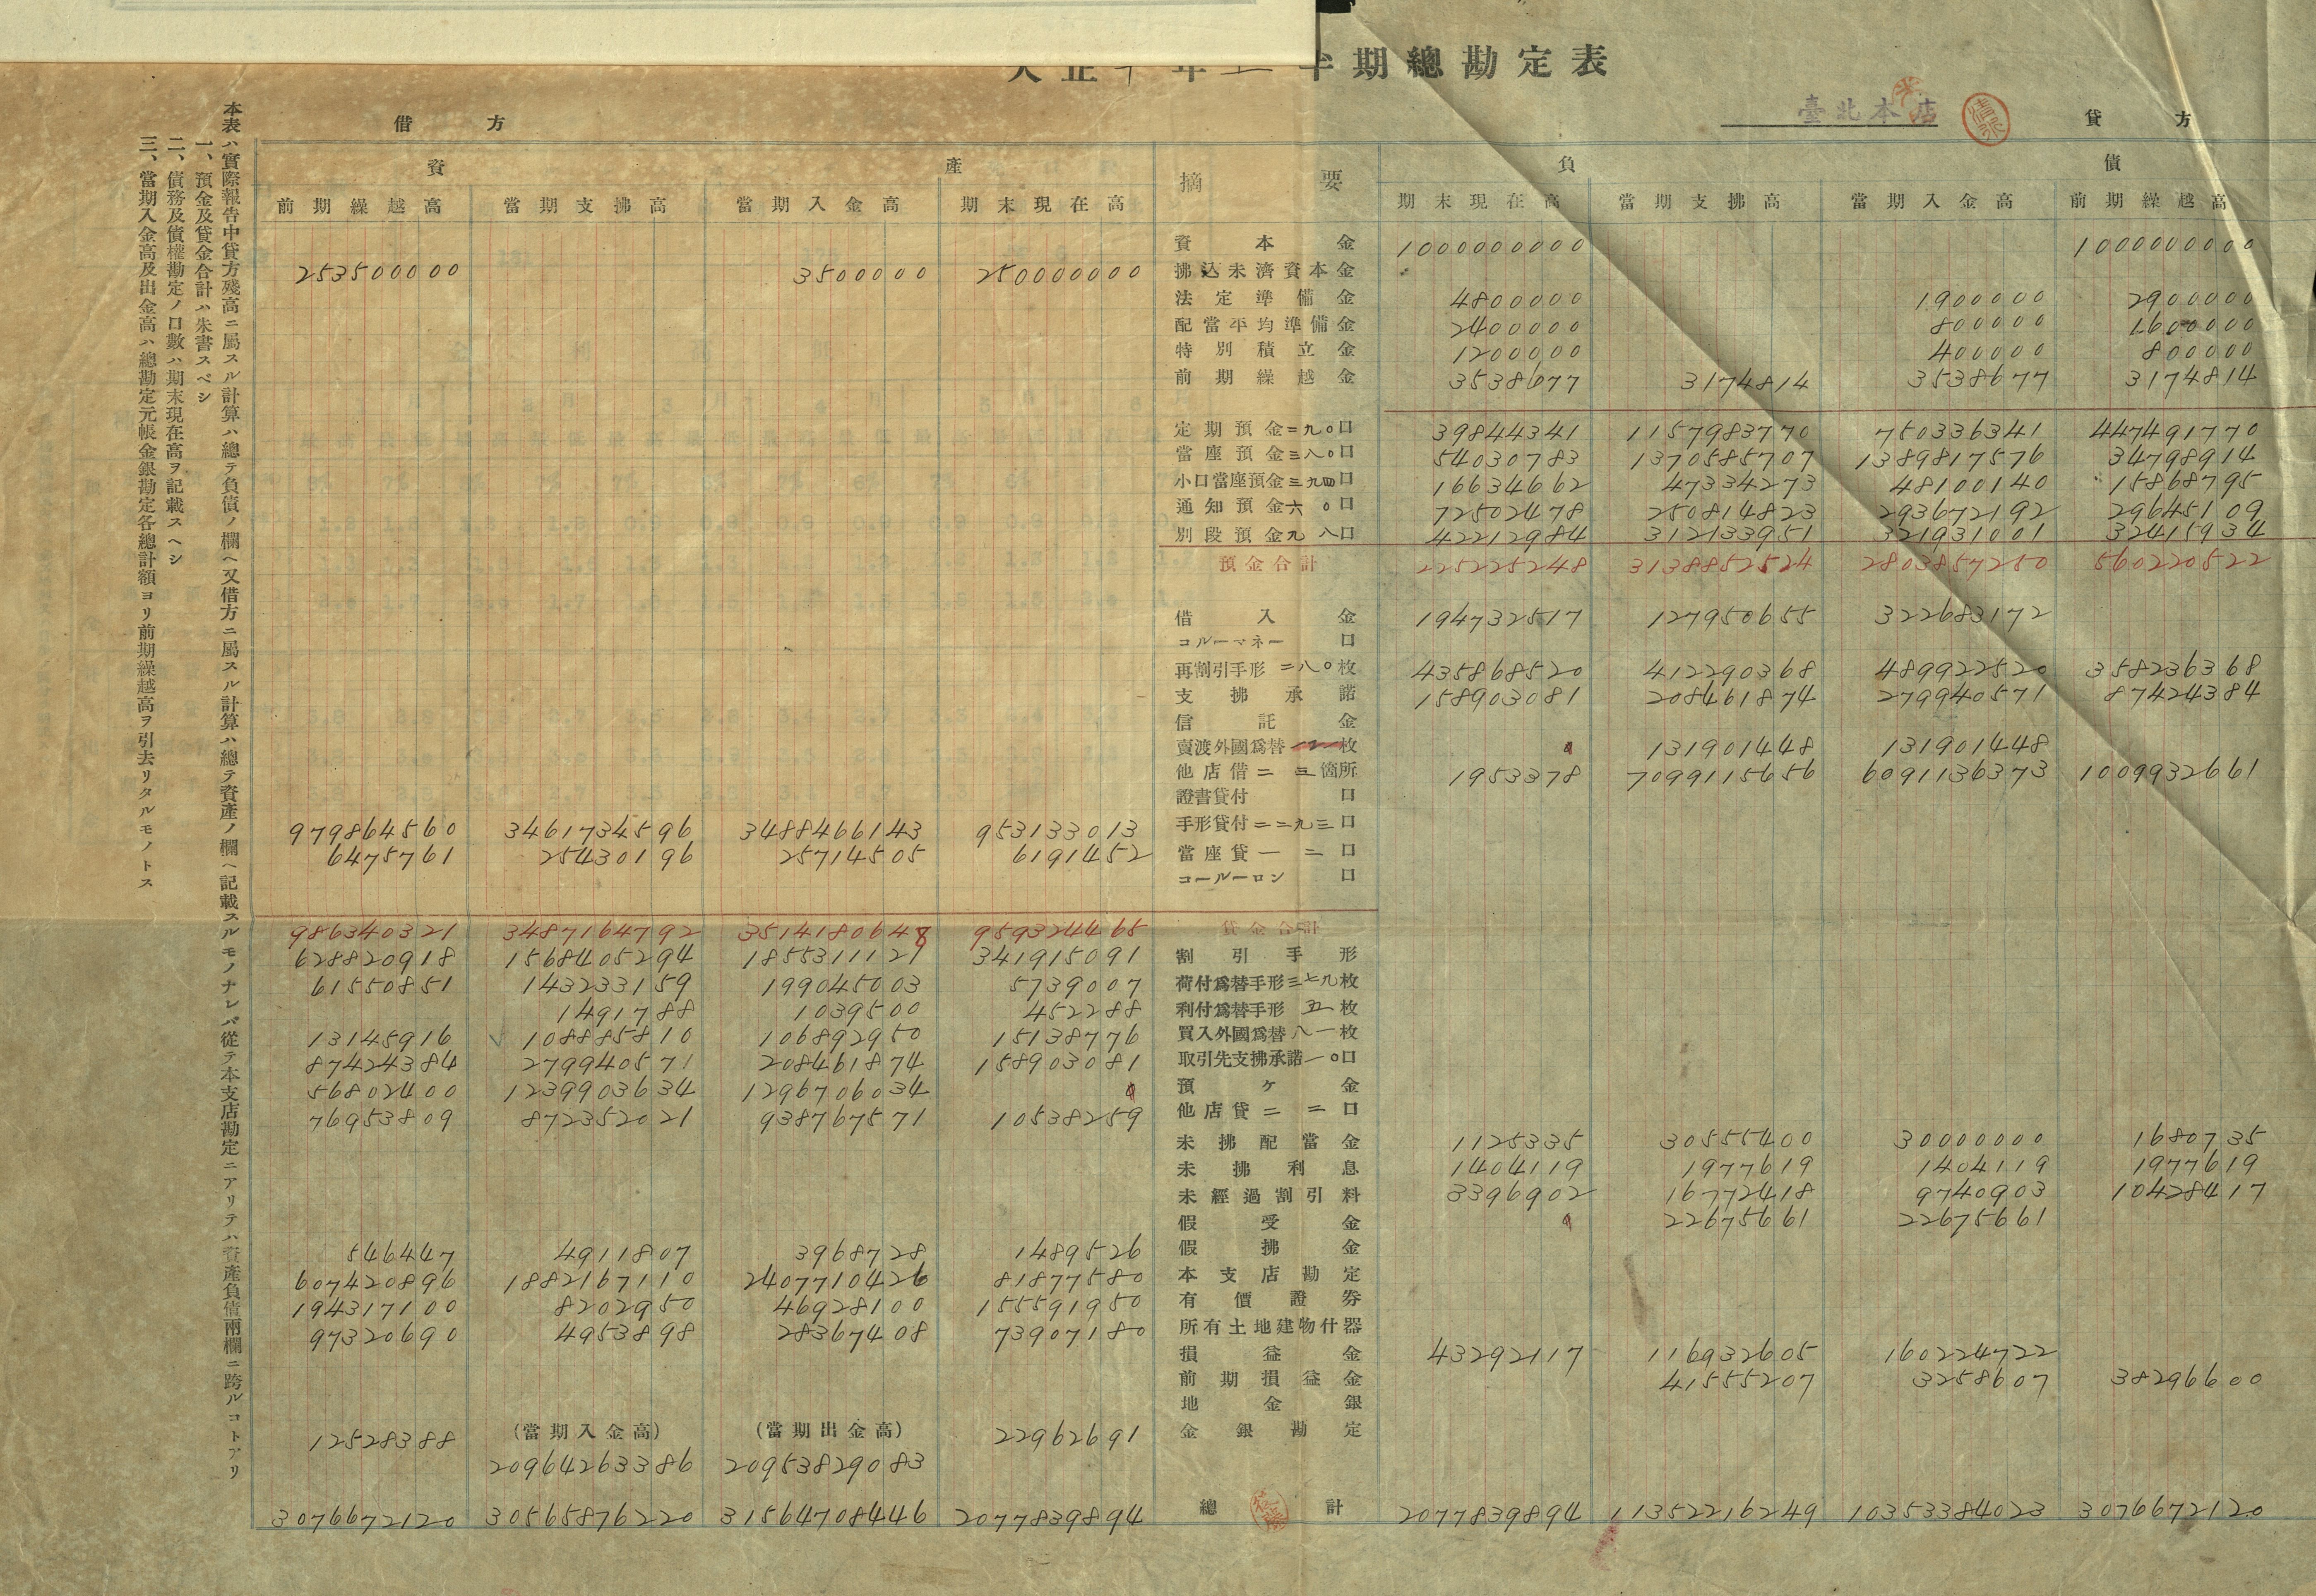 大正十年 半期總勘定表
臺北本店
借方 貸方
資產 摘要 負債
前期繰越高 當期支拂高 當期入金高 期末現在高 期末現在高 當期支拂高 當期入金高 前期繰越高
資本金 1000000000 1000000000
253500000 3500000 250000000 拂込未濟資本金
法定準備金 4800000 1900000 2900000
配當平均準備金 2400000 800000 1600000
特別積立金 1200000 400000 800000
前期繰越金 3538677 3174814 3538677 3174814
定期預金二九〇口 39844341 1157983770 750336341 447491770
當座預金三八〇口 54030783 1370585707 1389817576 34798914
小口當座預金三九四口 16634662 47334273 48100140 15868795
通知預金六〇口 72502478 250814823 293672192 29645109
別段預金九八口 42212984 312133951 321931001 32415934
預金合計 225225248 3138852524 2803857250 560220522
借入金 194732517 127950655 322683172
コルーマネー 口
再割引手形二八〇枚 435868520 412290368 489922520 358236368
支拂承諾 158903081 208461874 279940571 87424384
信託金
賣渡外國爲替 枚 0 131901448 131901448
他店借二三箇所 1953378 7099115656 6091136373 1009932661
證書貸付 口
979864560 3461734596 3488466143 953133013 手形貸付二二九三口
6475761 25430196 25714505 6191452 當座貸一二口
コールーロン 口
986340321 3487164792 3514180648 959324465 貸金合計
628820918 1568405294 1855311121 341915091 割引手形
61550851 143233159 199045003 5739007 荷付爲替手形三七九枚
1491788 1039500 452288 利付爲替手形五一枚
13145916 108885810 106892950 15138776 買入外國爲替八一枚
87424384 279940571 208461874 158903081 取引先支拂承諾一〇口
56802400 1239903634 1296706034 0 預ケ金
76953809 872352021 938767571 10538259 他店貸二二口
未拂配當金 1125335 30555400 30000000 1680735
未拂利息 1404119 1977619 1404119 1977619
未經過割引料 3396902 16772418 9740903 10428417
假受金 0 22675661 22675661
546447 4911807 3968728 1489526 假拂金
607420896 1882167110 2407710426 81877580 本支店勘定
194317100 8202950 46928100 155591950 有價證券
97320690 4953898 28367408 73907180 所有土地建物什器
損益金 43292117 116932605 160224722
前期損益金 41555207 3258607 38296600
地金銀
12528388 (當期入金高) (當期出金高) 22962691 金銀勘定
20964263386 20953829083
3076672120 30565876220 31564708446 2077839894 總計 2077839894 11352216249 10353384023 3076672120
本表ハ實際報告中貸方殘高ニ屬スル計算ハ總テ負債ノ欄ヘ又借方ニ屬スル計算ハ總テ資產ノ欄ヘ記載スルモノナレバ從テ本支店勘定ニアリテハ資產負債兩欄ニ跨ルコトアリ
一、預金及貸金合計ハ朱書スベシ
二、債務及債權勘定ノ口數ハ期末現在高ヲ記載スヘシ
三、當期入金高及出金高ハ總勘定元帳金銀勘定各總計額ヨリ前期繰越高ヲ引去リタルモノトス